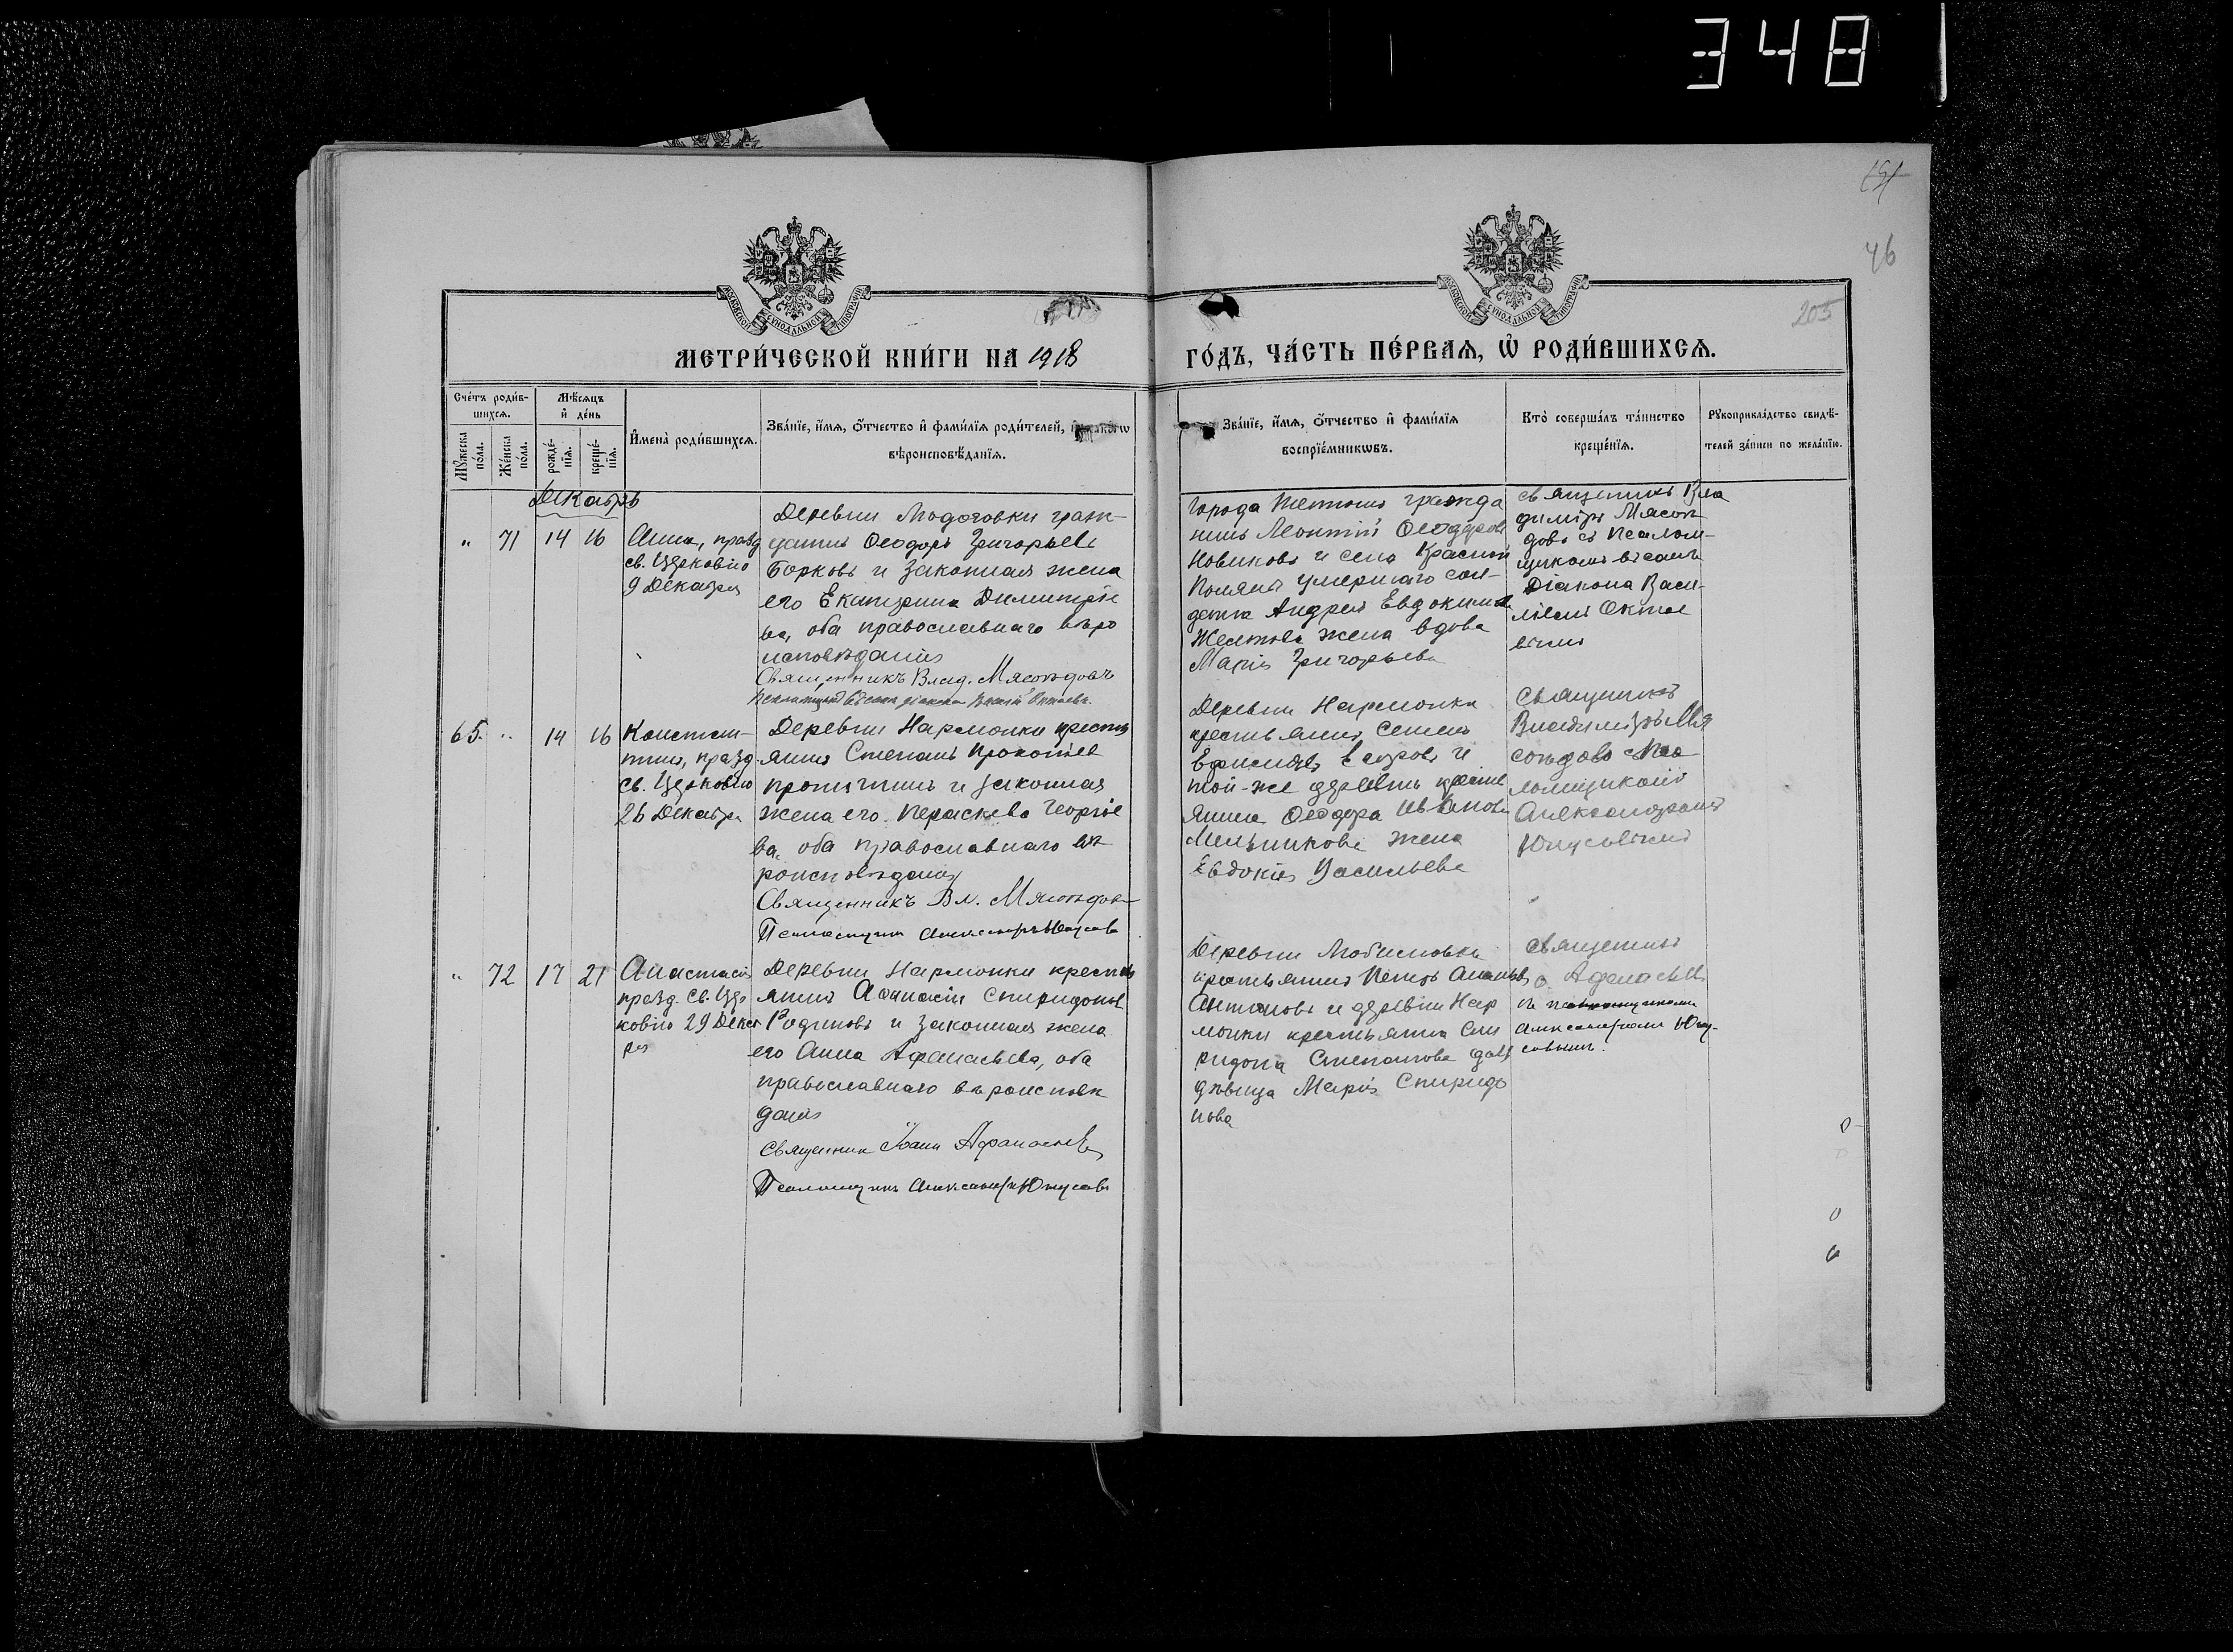 348
46
205
МЕТРИ́ЧЕСКОЙ КНИ́ГИ НА 1918
ГО́ДЪ, ЧА́СТЬ ПЕ́РВАѦ, Ѡ҆ РОДИ́ВШИХСѦ.
Сче́тъ роди́в-
шихсѧ.
Мѣ́сѧцъ
и҆ де́нь
Мꙋ́жеска по́ла.
Же́нска по́ла.
рожде́-
нїѧ.
креще́-
нїѧ.
И҆мена̀ роди́вшихсѧ.
Зва́нїе, и҆́мѧ, ѻ҆́тчество и҆ фами́лїѧ роди́телей,
вѣроисповѣ́данїѧ.
Зва́нїе, и҆́мѧ, ѻ҆́тчество и҆ фами́лїѧ
воспрїе́мникѡвъ.
Кто̀ соверша́лъ та́инство
креще́нїѧ.
Рꙋкоприкла́дство свидѣ́-
телей за́писи по жела́нїю.
Декабрь
" 71 14 16
Анна, празд
св. Церковію
9 Декабря
Деревни граж-
данинъ Ѳеодоръ Григорьевъ
Борковъ и законная жена
его Екатерина Димитріе
ва, оба православнаго вѣро
исповѣданія
Священникъ Влад. Мясоѣдовъ
Псаломщикъ въ санѣ діакона Василій
Города гражда
нинъ Леонтій Ѳеодоровъ
Новиковъ и села Красной
Поляны умершаго сол-
дата Андрея Евдокимова
жена вдова
Марія Григорьева
священникъ Вла
димиръ Мясоѣ-
довъ съ псалом-
щикомъ въ санѣ
Діакона Васи-
65. " 14 16
Констан-
тинъ, празд
св. Церковію
26 Декабря
Деревни Нармонки крестья
янинъ Степанъ Прокопіев
и законная
жена его Параскева Георгіе
ва, оба православнаго вѣ
роисповѣданія
Священникъ Вл. Мясоѣдовъ
Псаломщикъ Александръ Юнусовъ
Деревни Нармонки
крестьянинъ Семенъ
Егоровъ и
той-же деревни крестья
янина Ѳеодора Иванова
Мельникова жена
Евдокія Васильева
Священникъ
Владимиръ Мя
соѣдовъ съ пса
ломщикомъ
Александромъ
Юнусовымъ
" 72 17 21
Анастасія
празд. св. Цер
ковію 29 Декаб
ря
Деревни Нармонки крестья
янинъ Аѳанасій Спиридонов
Родіоновъ и законная жена
его Анна Афанасьева, оба
православнаго вѣроисповѣ
данія
Священникъ Іоаннъ Афанасьевъ
Псаломщикъ Александръ Юнусовъ
Деревни
крестьянинъ Петръ
Антоновъ и деревни Нар
монки крестьянина Спи
ридона Степанова
дѣвица Марія Спиридо
нова
Священникъ
Афанасьевъ
съ псаломщикомъ
Александромъ Юну-
совымъ.